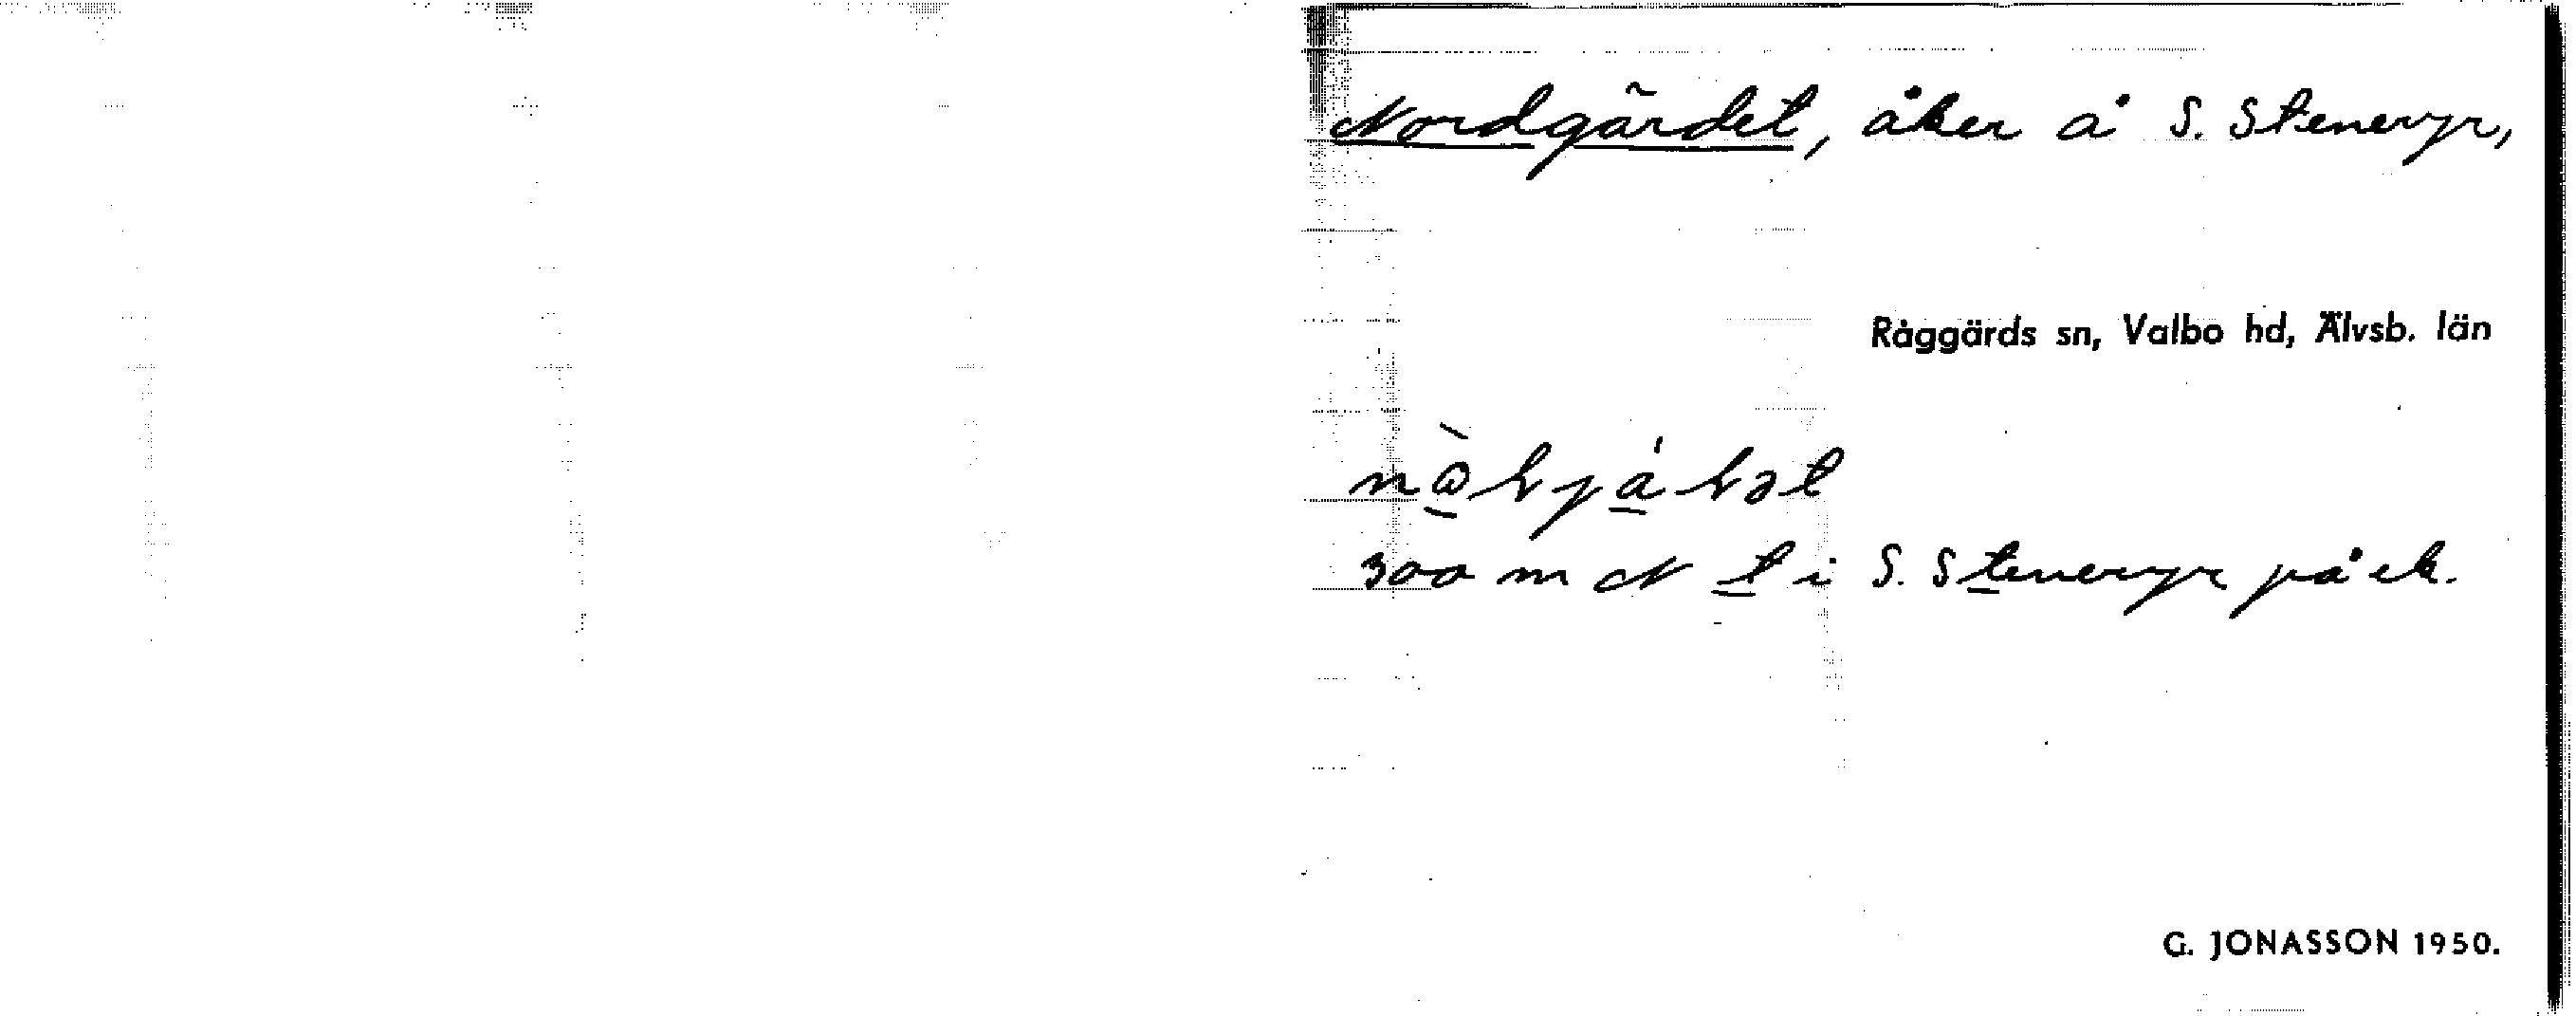 Nordgärdet, åker å S. Steneryr,
Råggärds sn, Valbo hd, Älvsb. län
300 m N t i S. Steneryr på ek.
G. JONASSON 1950.